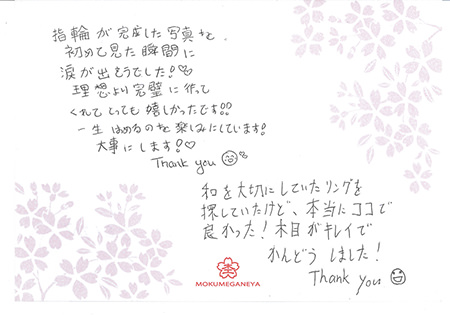 指輪が完成した写真を、
初めて見た瞬間に
涙が出そうでした!♡
理想より完璧に作って
くれてとっても嬉しかったです!!
一生はめるのを楽しみにしています!
大事にします!♡
Thank you
和を大切にしていたリングを
探していたけど、本当にココで
良かった!木目がキレイで
かんどうしました!
Thank you
MOKUMEGANEYA